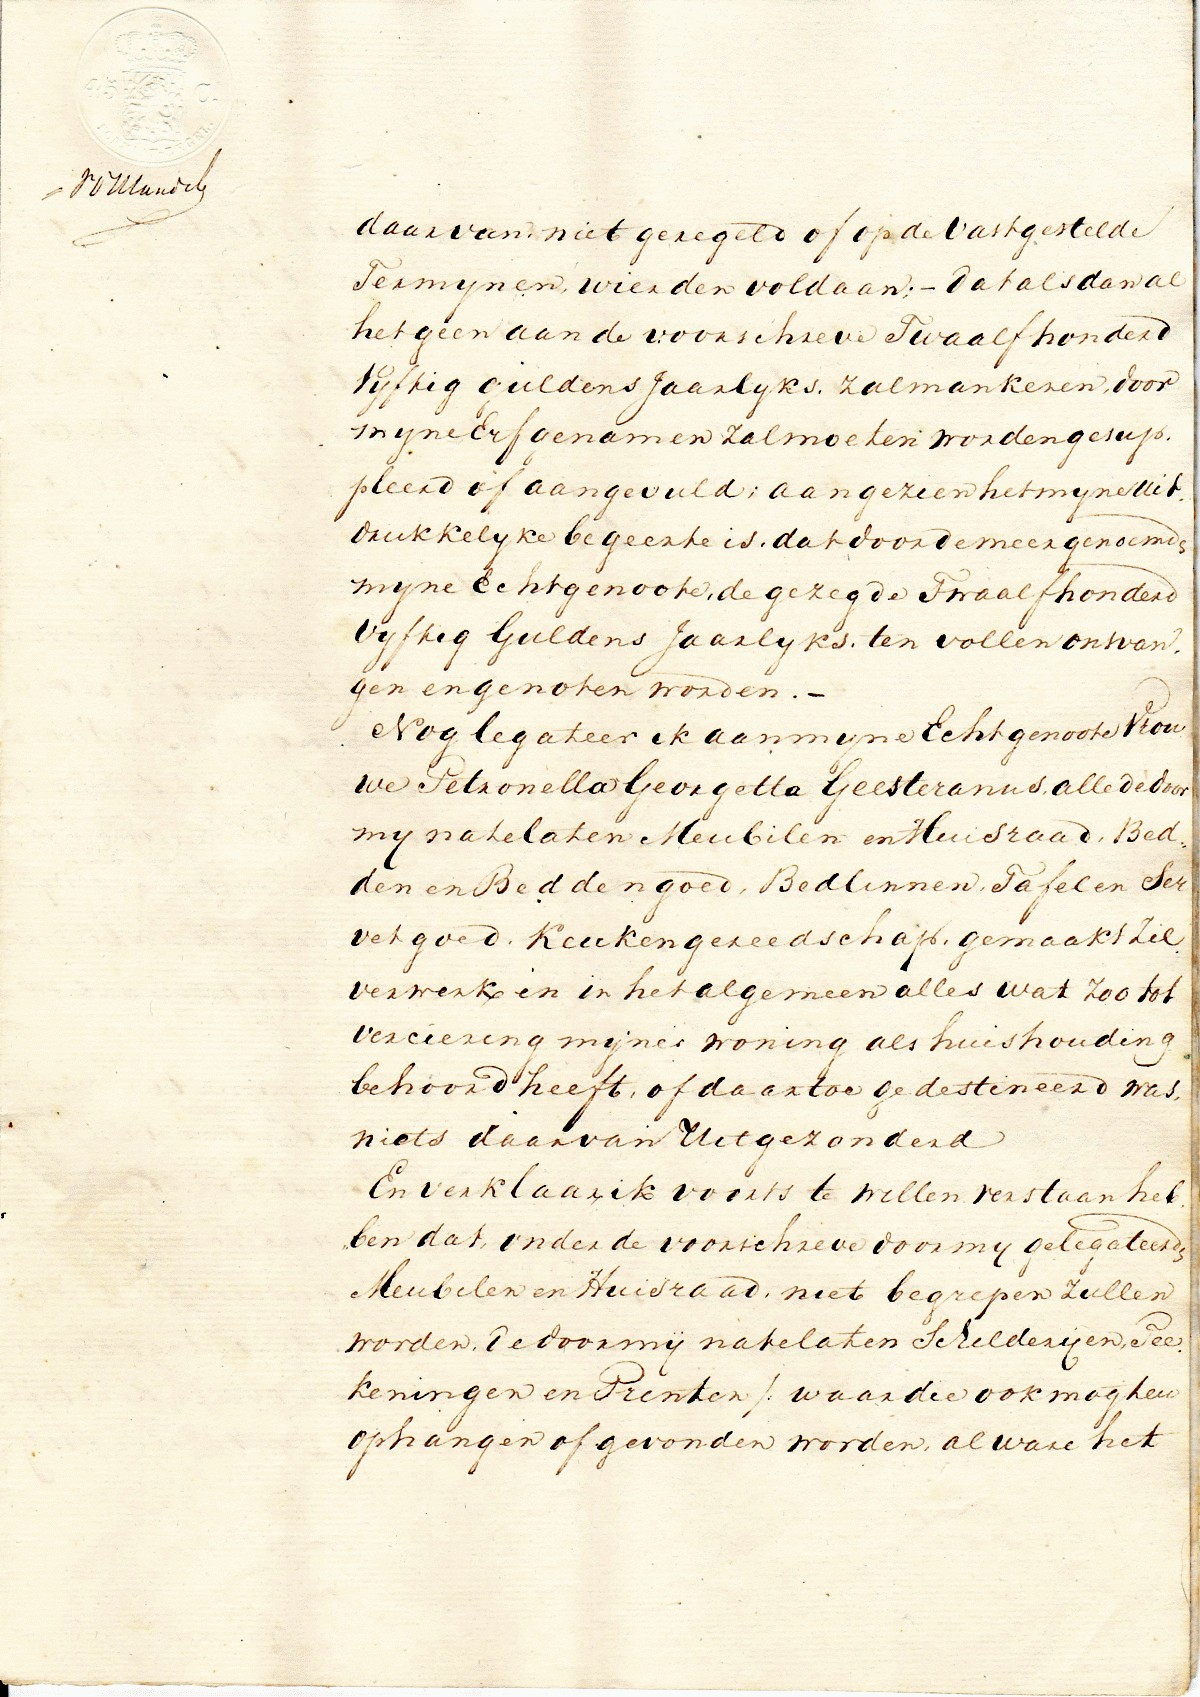 45 C.
daarvan niet geregeld of op de Vastgestelde
Termynen, wierden voldaan; – dat alsdan al
het geen aan de voorschreve Twaalf honderd
Vyftig guldens Jaarlyks. zal mankeren, door
myne Erfgenamen zal moeten worden gesup.
pleerd of aangevuld; aangezien het myne Uit.
drukkelyke begeerte is. dat door de meergenoemde
myne Echtgenoote, de gezegde Twaalf honderd
Vyftig Guldens Jaarlyks. ten vollen ontvan.
gen en genoten worden. –
Nog legateer ik aan myne Echtgenoote Vrou
we Petronella Georgetta Geesteranus, alle de door
my natelaten Meubilen en Huisraad, Bed.
den en Beddengoed, Bedlinnen, Tafel en Ser
vet goed. Keukengereedschap, gemaakt Zil.
verwerk en in het algemeen alles wat zoo tot
verciering myner woning als huishouding
behoord heeft, of daartoe gedestineerd was,
niets daarvan Uitgezonderd
En verklaar ik voorts te willen verstaan heb.
ben dat, onder de voorschreve door my gelegateerde
Meubilen en Huisraad. niet begrepen zullen
worden, De door mij natelaten Schilderijen, Tee.
keningen en Prenten /: waar die ook mogten
ophangen of gevonden worden, al ware het